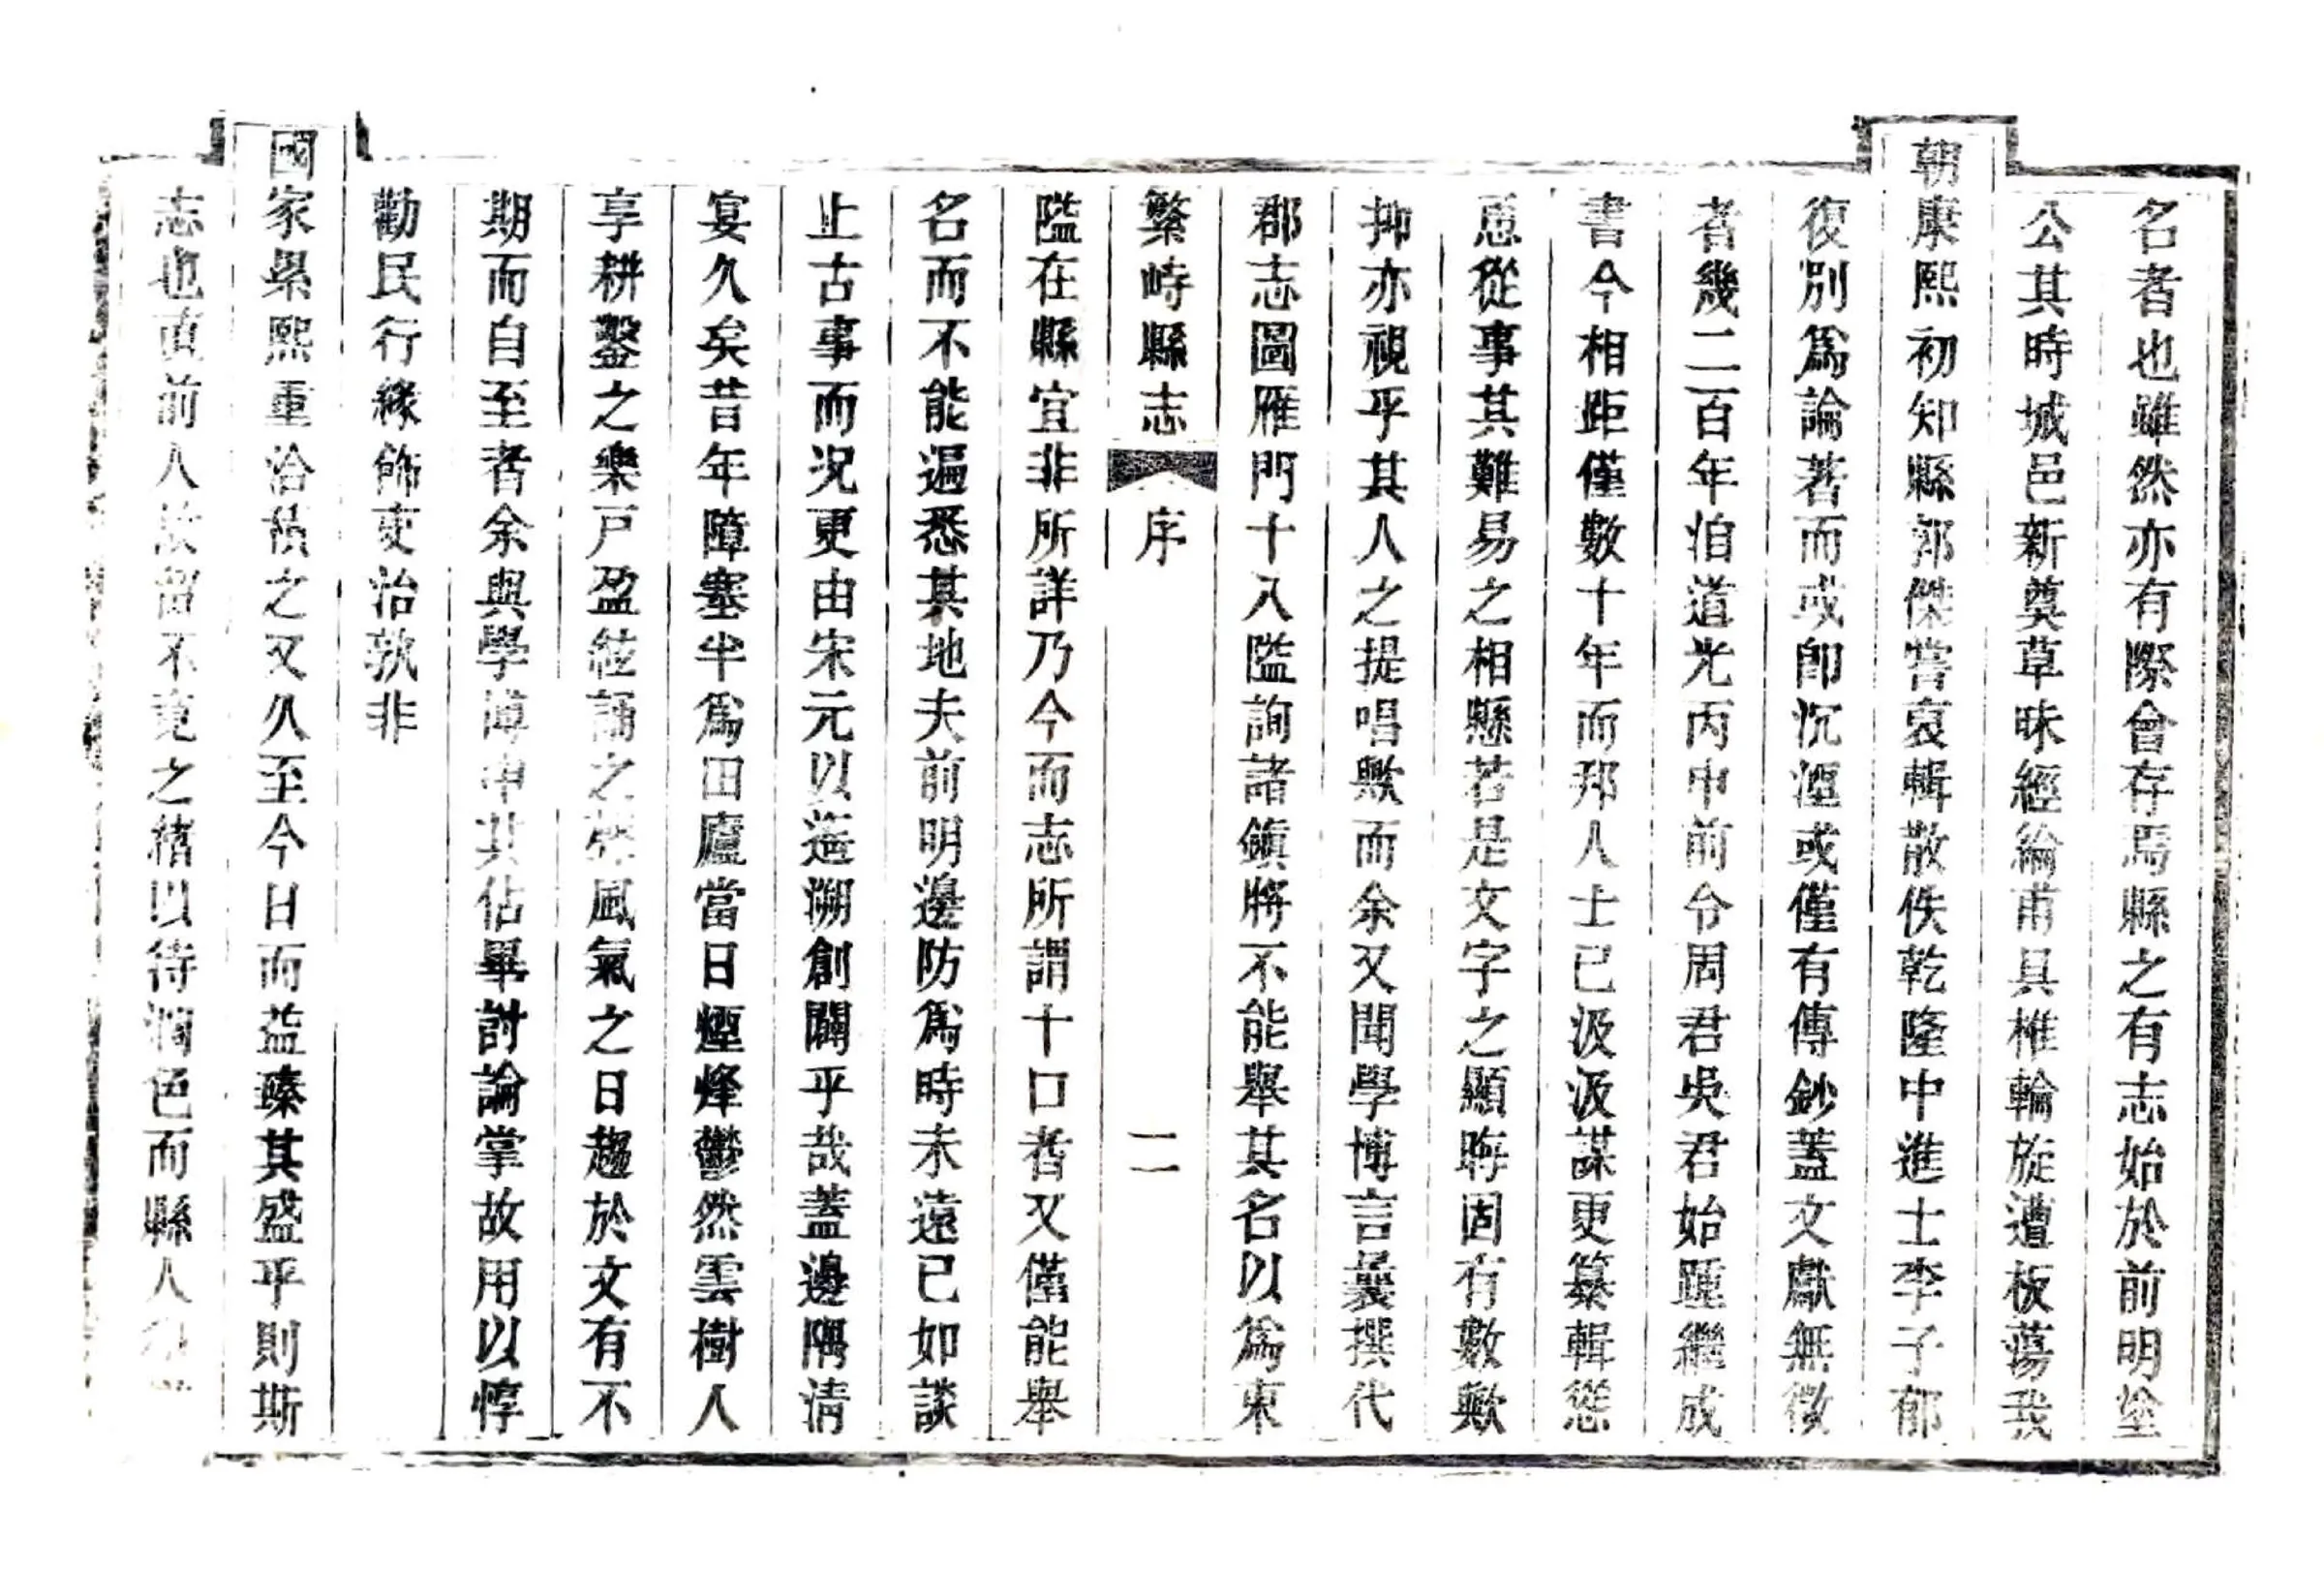 名者也雖然亦有際會存焉縣之有志始於前明塗
公其時城邑新奠草昧經綸甫具椎輪旋遭板蕩我
朝康熙初知縣郭傑嘗裒輯散佚乾隆中進士李子郁
復別爲論著而或卽沉湮或僅有傳鈔蓋文獻無徵
者幾二百年洎道光丙申前令周君吳君始踵繼成
書今相距僅數十年而邦人士已汲汲謀更纂輯慫
恿從事其難易之相懸若是文字之顯晦固有數歟
抑亦視乎其人之提唱歟而余又聞學博言曩撰代
郡志圖雁門十八隘詢諸鎮將不能舉其名以爲東
繁峙縣志 序 二
隘在縣宜非所詳乃今而志所謂十口者又僅能舉
名而不能遍悉其地夫前明邊防爲時未遠已如談
上古事而況更由宋元以遡創闢乎哉蓋邊隅淸
宴久矣昔年障塞半爲田廬當日煙烽鬱然雲樹人
享耕鑿之樂戸盈絃誦之聲風氣之日趨於文有不
期而自至者余與學博申其佔畢討論掌故用以惇
勸民行緣飾吏治孰非
國家累熙重洽積之又久至今日而益臻其盛乎則斯
志也直前人故留不竟之緒以待潤色而縣人